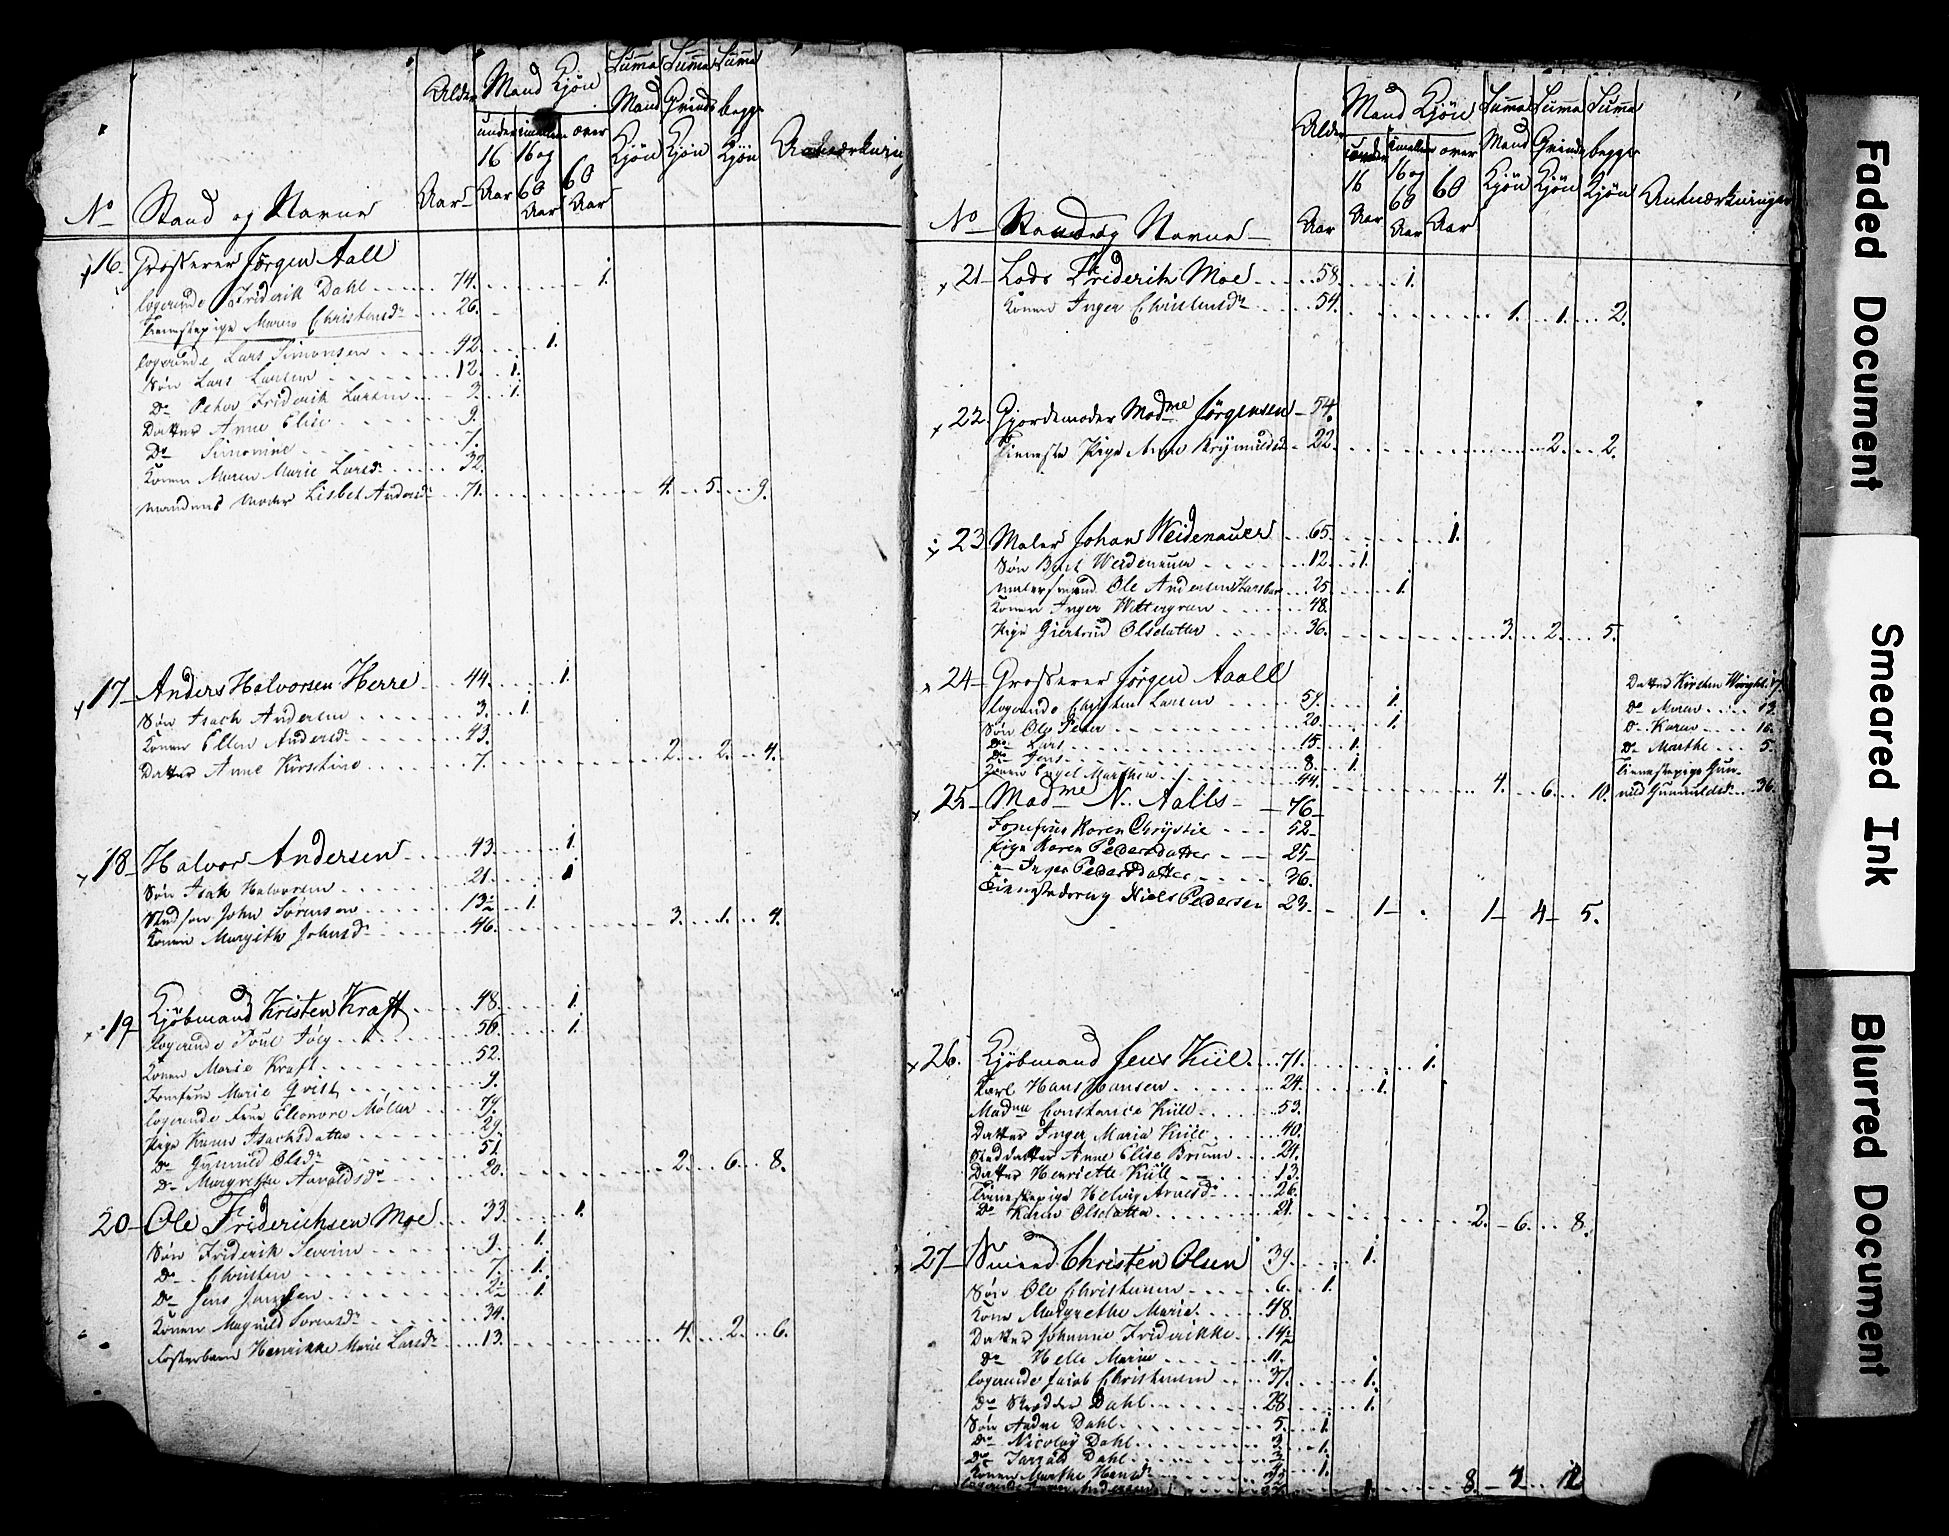 No Stand og Navne Alder Aar Mand Kjön under 16 Aar imellem 16 og 60 Aar over 60 Aar Summa Mand Kjön Summa Qvinde Kjön Summa begge Kjön Anmærkning
16 Grosserer Jörgen Aall
logerende Friderik Dahl 74. 1.
Tienestepige Maren Christensdr 26.
logerende Lars Simonsen 42. 1.
Sön Lars Larsen 12. 1.
Do Peter Friderik Larsen 3. 1.
Datter Anne Elise 9.
Do Simonine 7.
Konen Maren Marie Larsdr 32.
Mandens Moder Lisbet Andersdr 71. 4. 5. 9.
17 Anders Halvorsen Herre 44. 1.
Sön Isach Andersen 3. 1.
Konen Ellen Andersdr 43.
Datter Anne Kirstine 7. 2. 2. 4.
18 Halvor Andersen 43. 1.
Sön Isak Halvorsen 21. 1
Stedsön John Sörensen 13 1.
Konen Margith Johnsdr 46. 3. 1. 4.
19 Kjöbmand Kristen Kraft 48. 1.
logerende Poul 56. 1.
Konen Marie Kraft 52.
Jomfrue Marie Qvist 9.
logerende Frue Eleonore Möller 79.
Pige Karen Isachsdatter 29.
Do Gunnild Olsdr 51.
Do Margrethe Aavoldsdr 20. 2. 6. 8.
20 Ole Friderichsen Moe 33. 1.
Sön Friderik Severin 9. 1.
Do Christen 7. 1.
Do Jens 2 1.
Konen Magnild Sorensdr 34.
Fosterbarn Henrikke Marie Larsdr 13. 4. 2. 6.
No Stand og Navne Alder Aar Mand Kjön under 16 Aar imellem 16 og 60 Aar over 60 Aar Summa Mand Kjön Summa Qvinde Kjön Summa begge Kjön Anmærkninger
21 Lods Friderik Moe 58. 1.
Konen Inger Christensdr 54. 1. 1. 2.
22. Gjordemoder Madme Jörgensen 54.
Tieneste Pige Anne 22. 2. 2.
23 Maler Johan Weidenauer 65. 1.
Sön Bent Weidenauer 12. 1.
Malersvend Ole Andersen 25. 1.
Konen Inger Wettergren 48.
Pige Giertrud Olsdatter 36. 3. 2. 5.
24 Grosserer Jörgen Aaall
logerende Christen Larsen 59. 1.
Sön Ole Peter 20. 1.
Do Lars 15. 1.
Do Jens 8. 1.
Konen Engel Marthea 44. 4. 6. 10.
Datter Kirsten 17.
Do Maren
Do Karen
Do Marthe 5.
Tienestepige Gunnild Gunnuldsdr 36.
25 Madme N. Aalls 76
Jomfrue Karen Chrystie 52
Pige Karen Pedersdatter 25
Inger Pedersdatter 36.
Tienestedreng Niels Pedersen 23. 1 1 4 5.
26. Kjöbmand Jens Kiil 71. 1.
Karl Hans Hansen 24. 1.
Madm Constance Kiil 53.
Datter Inger Maria Kiil 40.
Steddatter Anne Elise Bruun 21.
Datter Henriette Kiil 13.
Tienestepige Helvig Arnesdr 26.
Do Karen Olsdatter 21. 2. 6. 8.
27 Smeed Christen Olsen 39. 1.
Sön Ole Christensen 6. 1.
Kone Margrethe Marie 48.
Datter Johanne Friderikke 14
Do Helle Marie 11.
logerende Jacob Christensen 37. 1.
Do Skredder Dahl 28. 1.
Sön Andre Dahl 5. 1.
Do Nicolay Dahl 3. 1.
Do Dahl 1.
Konen Marthe Hansdr 32
logerende Andersen 1. 8. 12
Faded Document
Smeared Ink
Blurred Document